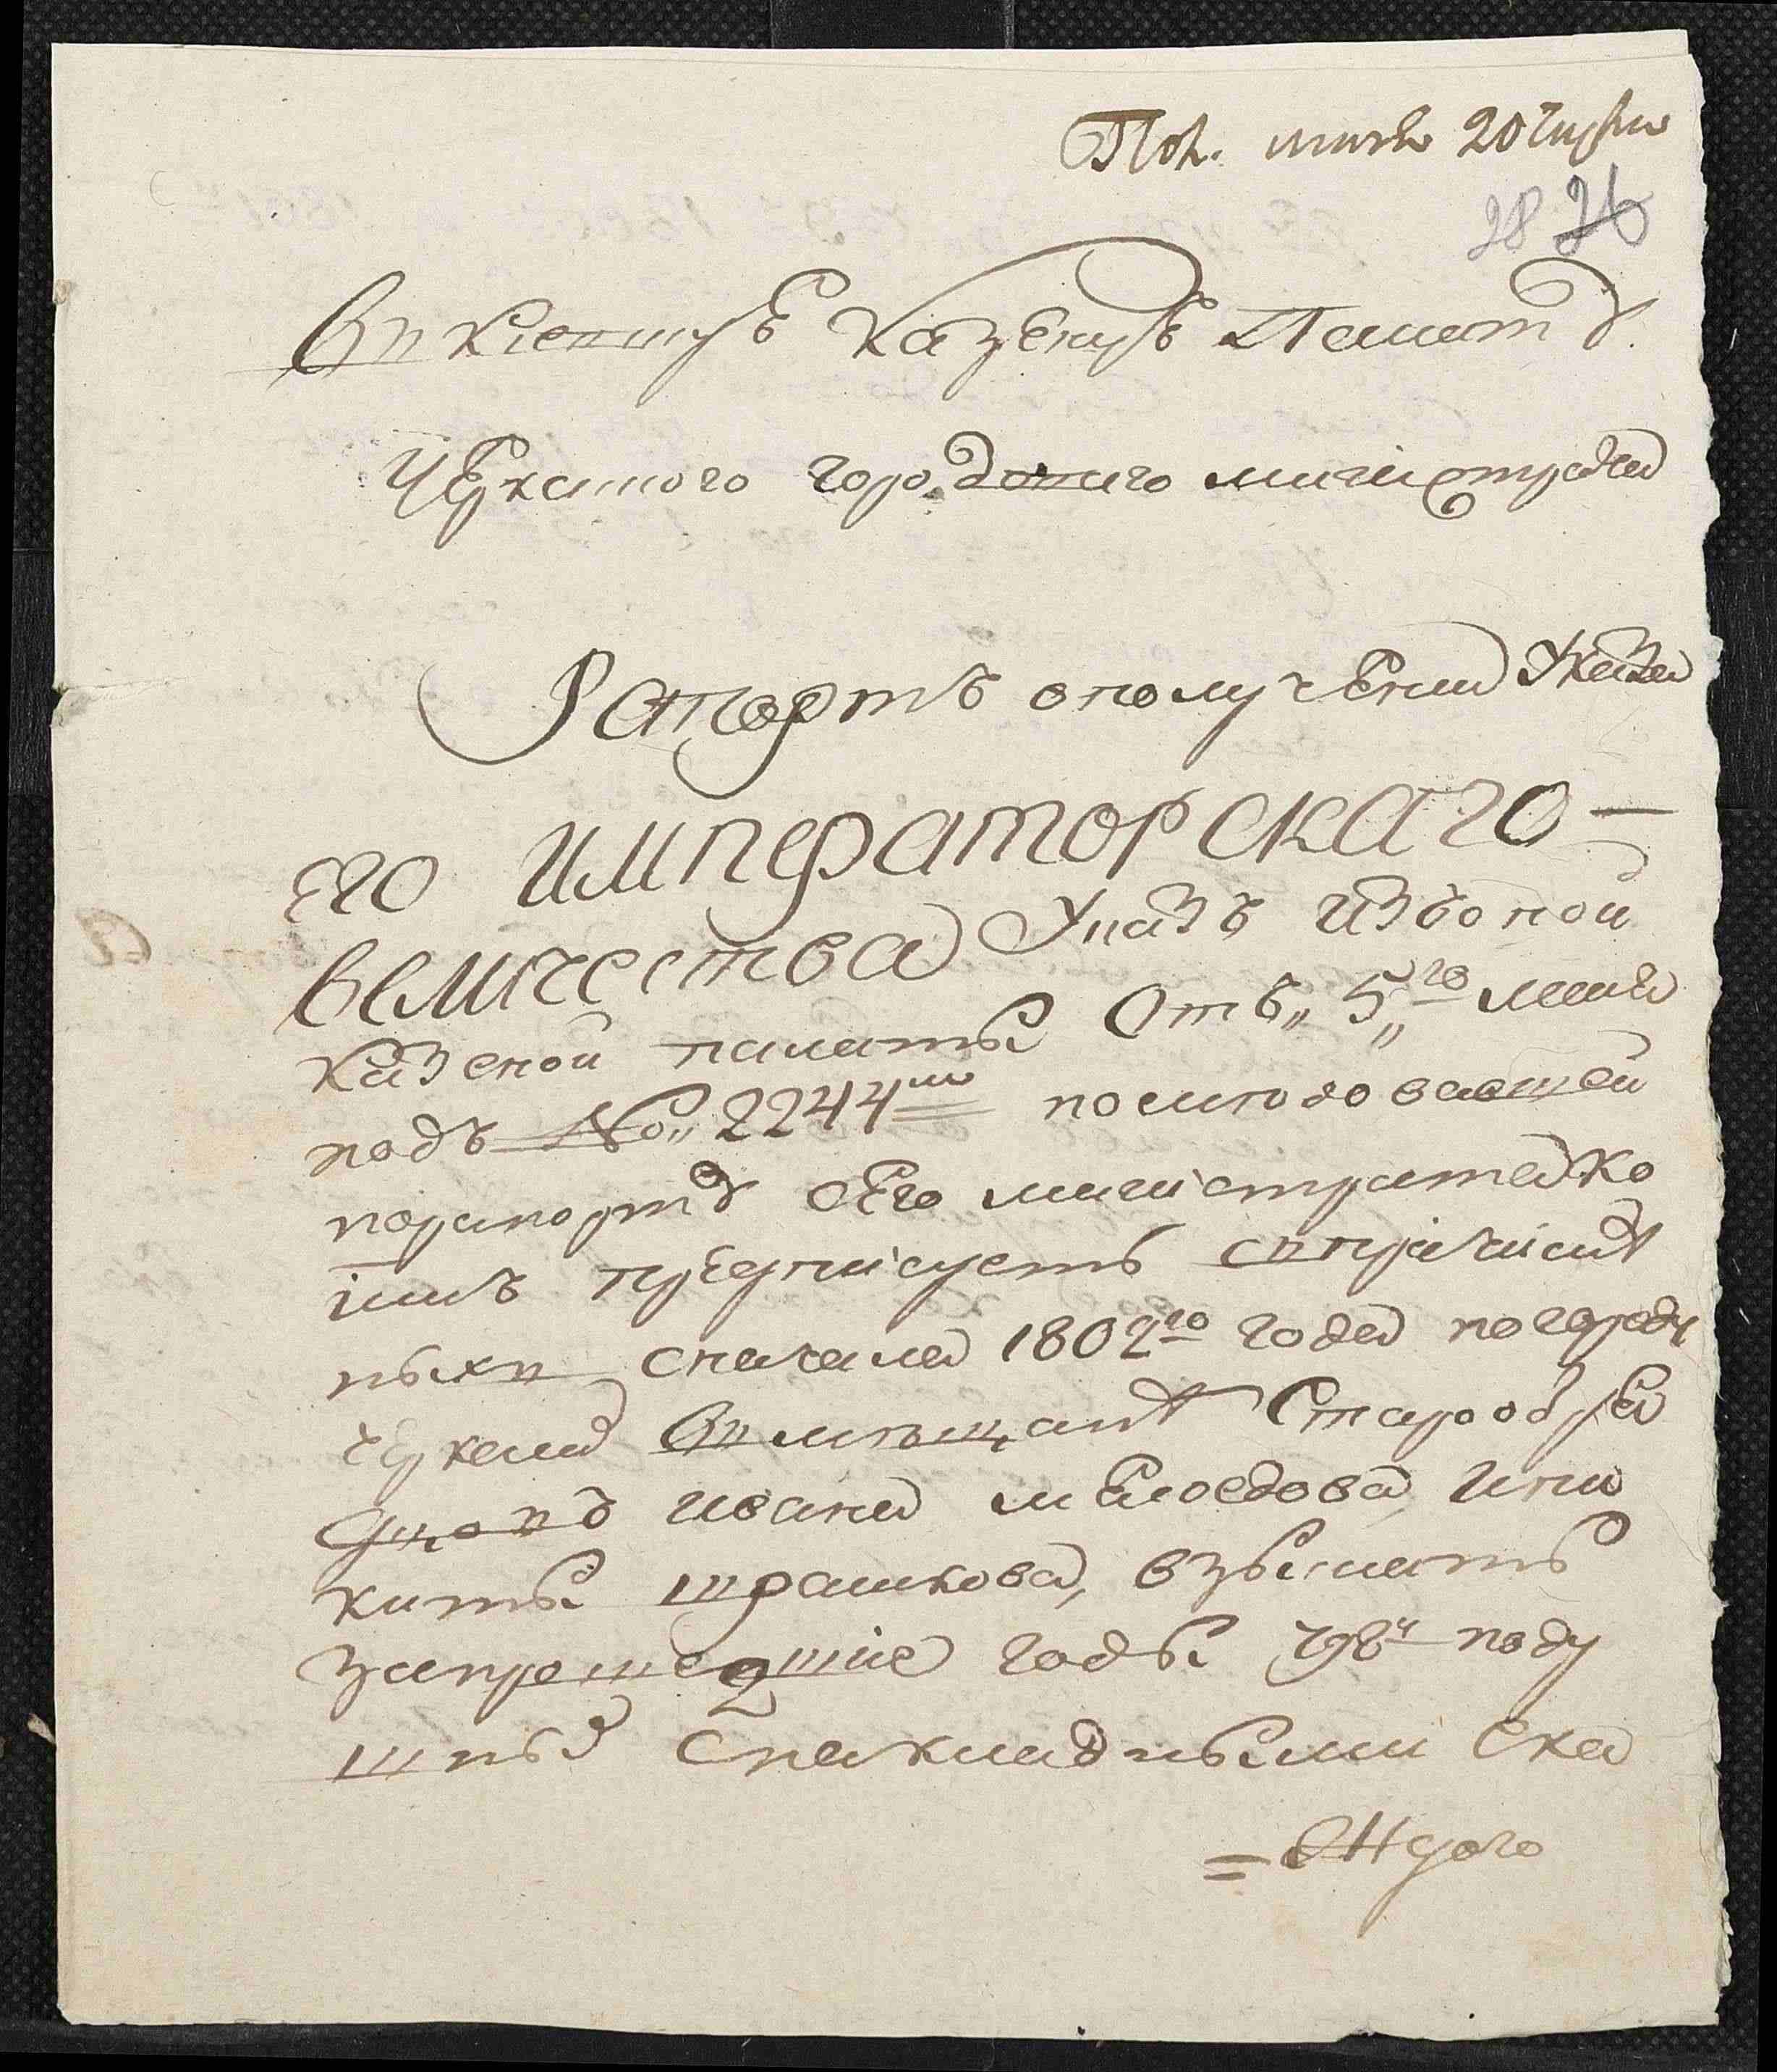 Пол. маія 20 Числа
28 26
Въ Киевскую Казенную Палату
Черкаского городоваго магистрата
Рапортъ о получении Указа
Его Императорскаго —
величества Указъ изъ оной
казеной палаты Отъ „5„го маия
подъ № 2244м последовавшей
порапорту сего магистрата ко
имъ предписуетъ
сначала 1802го года погороду
черкасам въ мещане Старообря
цовъ ивана меледова, ини
киты трашкова, взыскать
запрошедшие годы поду
шные снакладными ска
= ждого